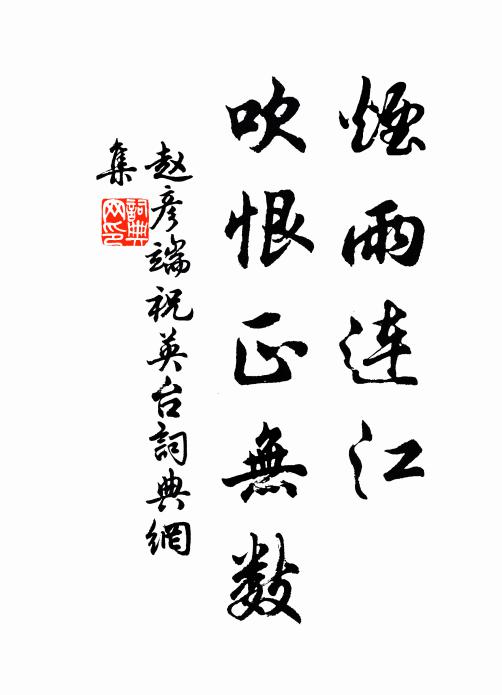 煙雨連江
吹恨正無数
赵彥端祝英台詞典網
集
詞典
网印